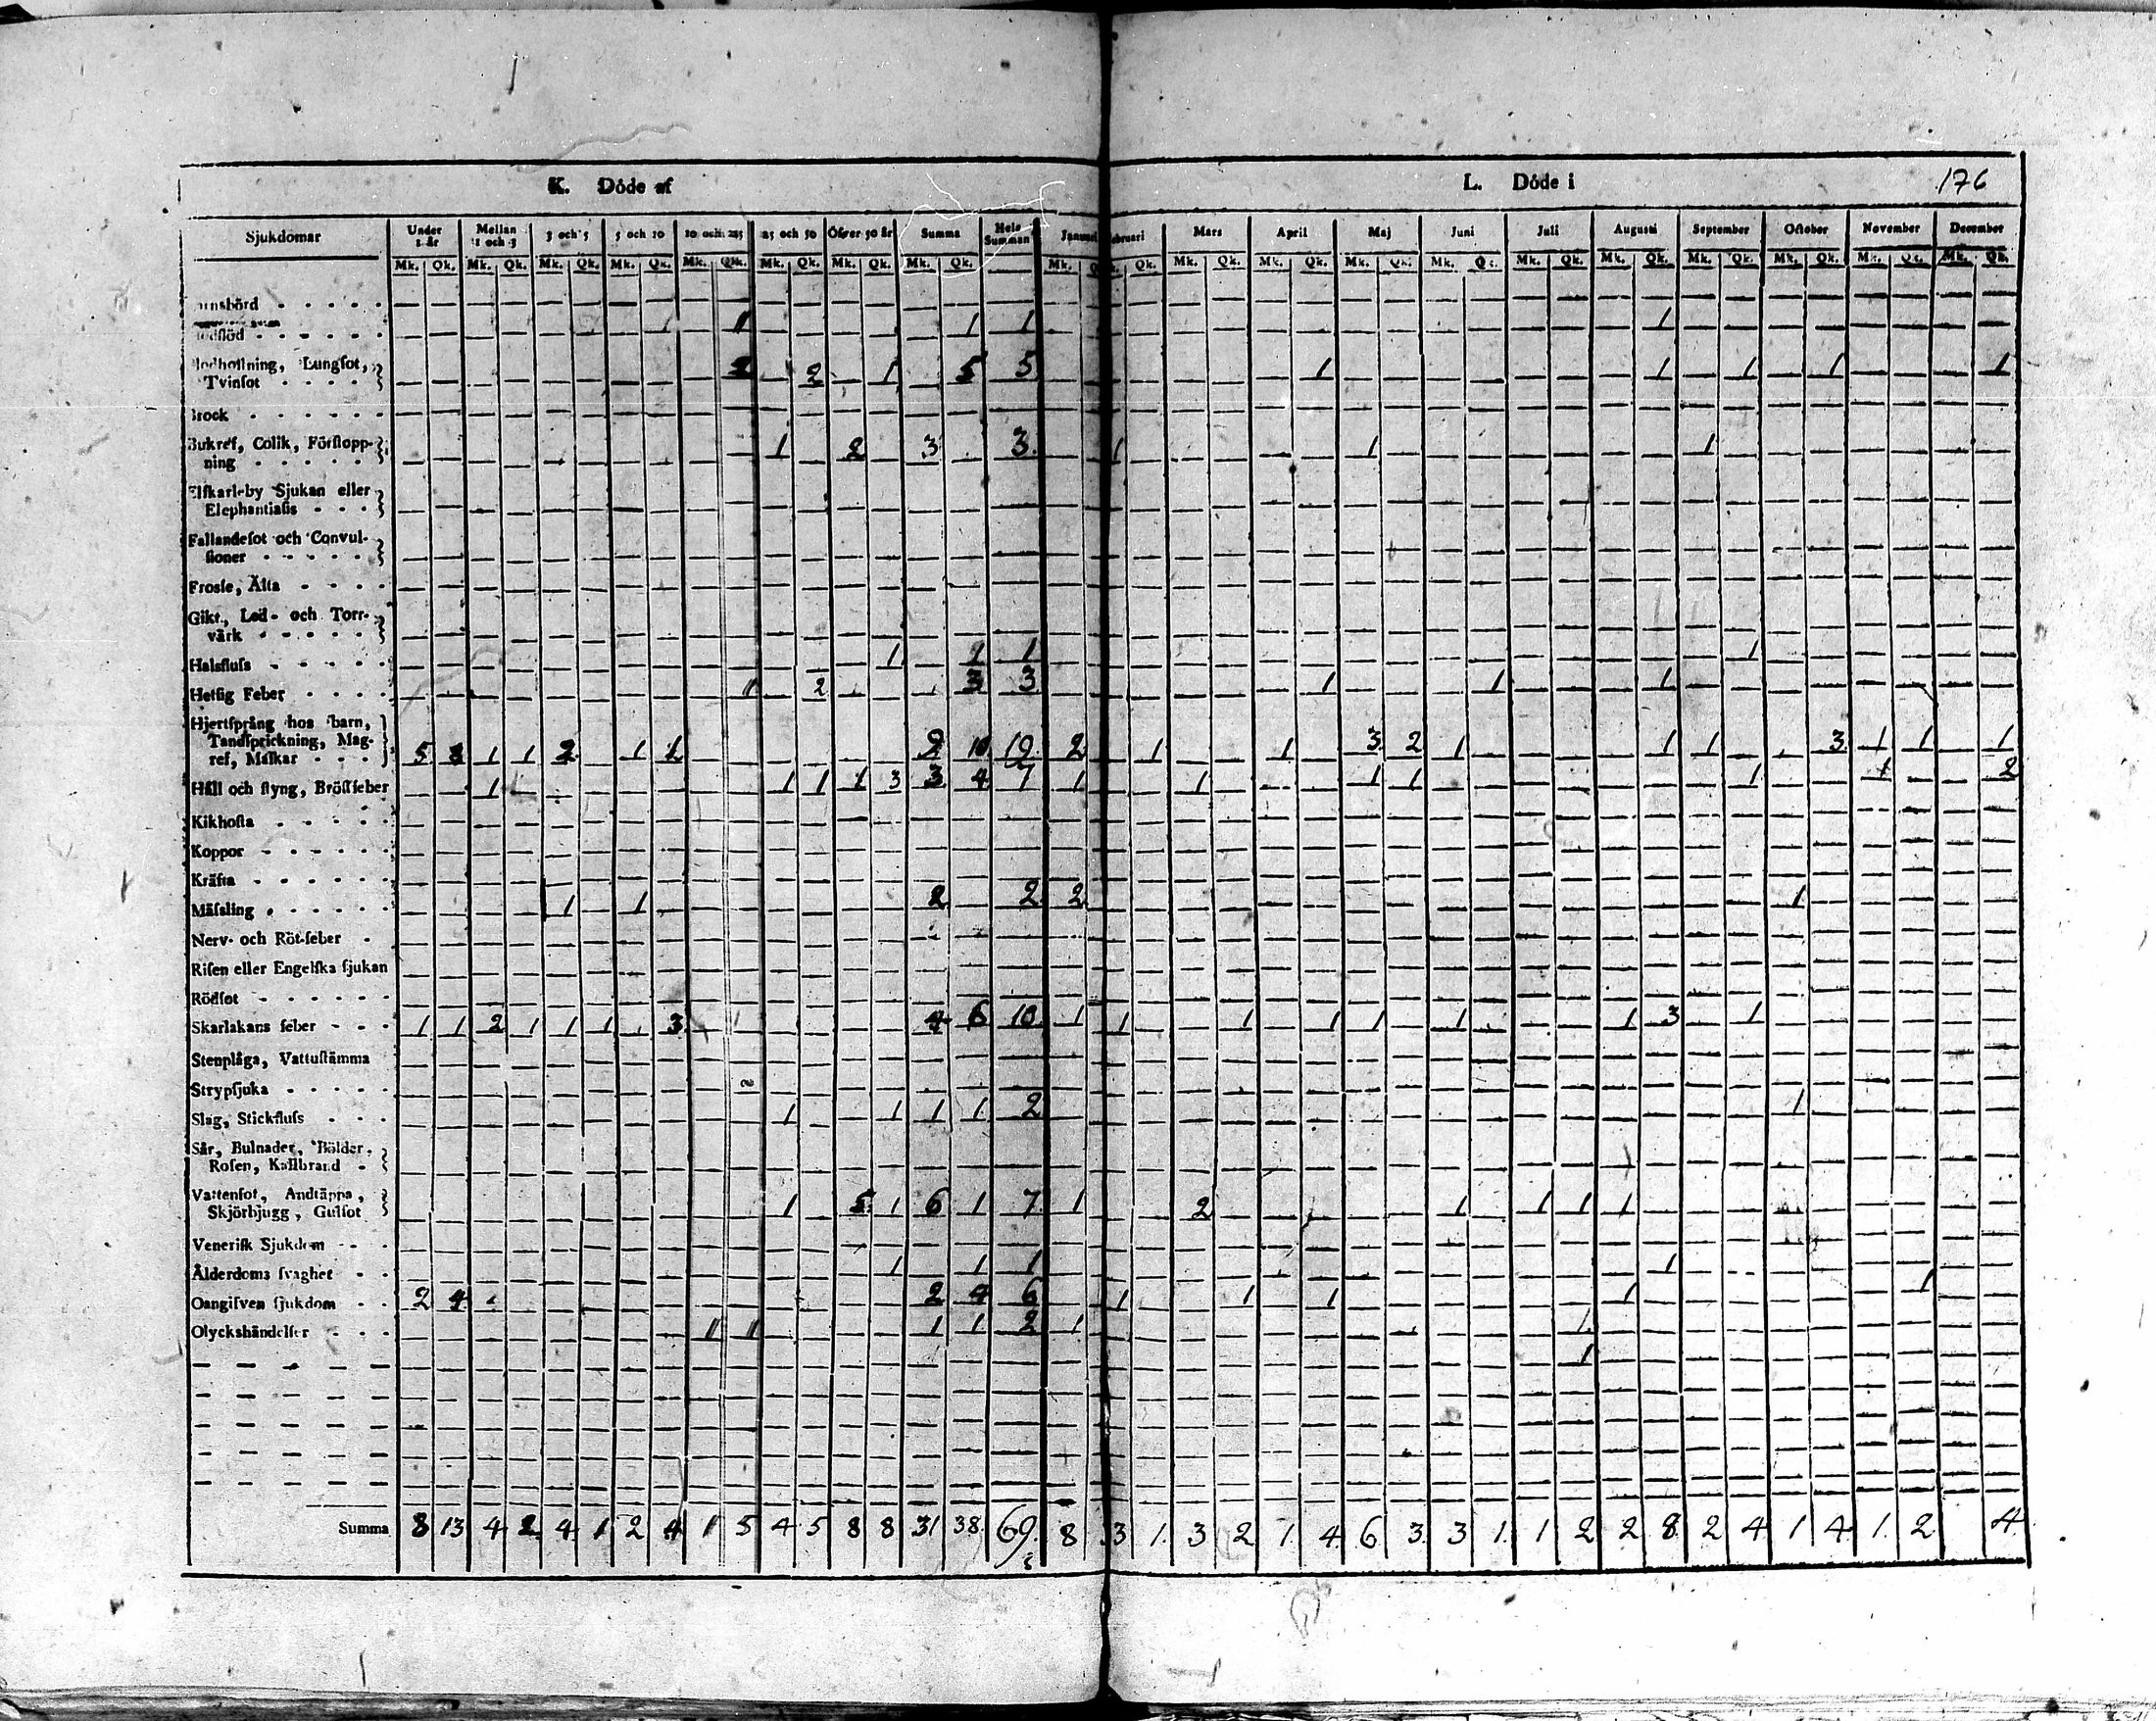 K. Döde af L. Döde i 176
Sjukdomar Under 1 år Mellan 1 och 3 3 och 5 5 och 10 10 och 25 25 och 50 Öfver 50 år Summa Hela Summan Mars April Maj Juni Juli Augusti September October November December
Mk. Qk. Mk. Qk. Mk. Qk. Mk. Qk. Mk. Qk. Mk. Qk. Mk. Qk. Mk. Qk. Mk. Qk. Mk. Qk. Mk. Qk. Mk. Qk. Mk. Qk. Mk. Qk. Mk. Qk. Mk. Qk. Mk. Qk. Mk. Qk. Mk. Qk.
1 1 1 1
Lungſot,
Tvinſot 2 2 1 5 5 1 1 1 1 1
Colik, Förſtopp-
ning 1 2 3 3 1 1 1
Sjukan eller
Elephantiaſis
Fallandeſot och Convul-
ſioner
Froſſe, Älta
Gikt, Led- och Torr-
värk
Halsfluſs 1 1 1 1
Hetſig Feber 1 2 3 3 1 1 1
Hjertſprång hos barn,
Tandſprickning, Mag-
ref, Maſkar 5 3 1 1 2 1 1 10 19 2 1 1 3 2 1 1 1 3 1 1 1
Håll och ſtyng, Bröſtfeber 1 1 1 1 3 3 4 7 1 1 1 1 1 1 2
Kikhoſta
Koppor
Kräfta
Mäſsling 1 1 2 2 2 1
Nerv- och Röt-feber
Riſen eller Engelſka ſjukan
Rödſot
Skarlakans feber 1 1 2 1 1 1 3 4 6 10 1 1 1 1 1 1 1 3 1
Stenplåga, Vattuſtämma
Strypſjuka
Slag, Stickfluſs 1 1 1 1 2 1
Sår, Bulnader, Bölder,
Roſen, Kallbrand
Vattenſot, Andtäppa,
Skjörbjugg, Gulſot 1 5 1 6 1 7 1 2 1 1 1 1
Veneriſk Sjukdom
Ålderdoms ſvaghet 1 1 1 1
Oangifven ſjukdom 2 4 2 4 6 1 1 1 1 1
Olyckshändelſer 1 1 1 1 2 1 1
1
Summa 8 13 4 2 4 1 2 4 1 5 4 5 8 8 31 38 69 8 3 1 3 2 1 4 6 3 3 1 1 2 2 8 2 4 1 4 1 2 4